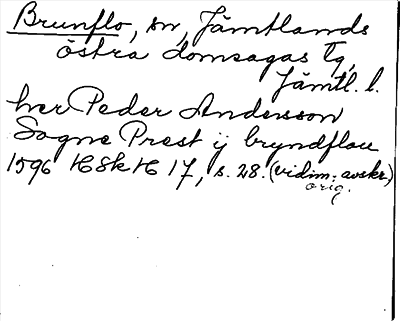 Brunflo, sn, Jämtlands
östra domsagas tg,
Jämtl. l.
her Peder Andersson
Sogne Prest ij bryndfloe
1596 HSkH 17, s. 28. (vidim. avskr.)
orig.